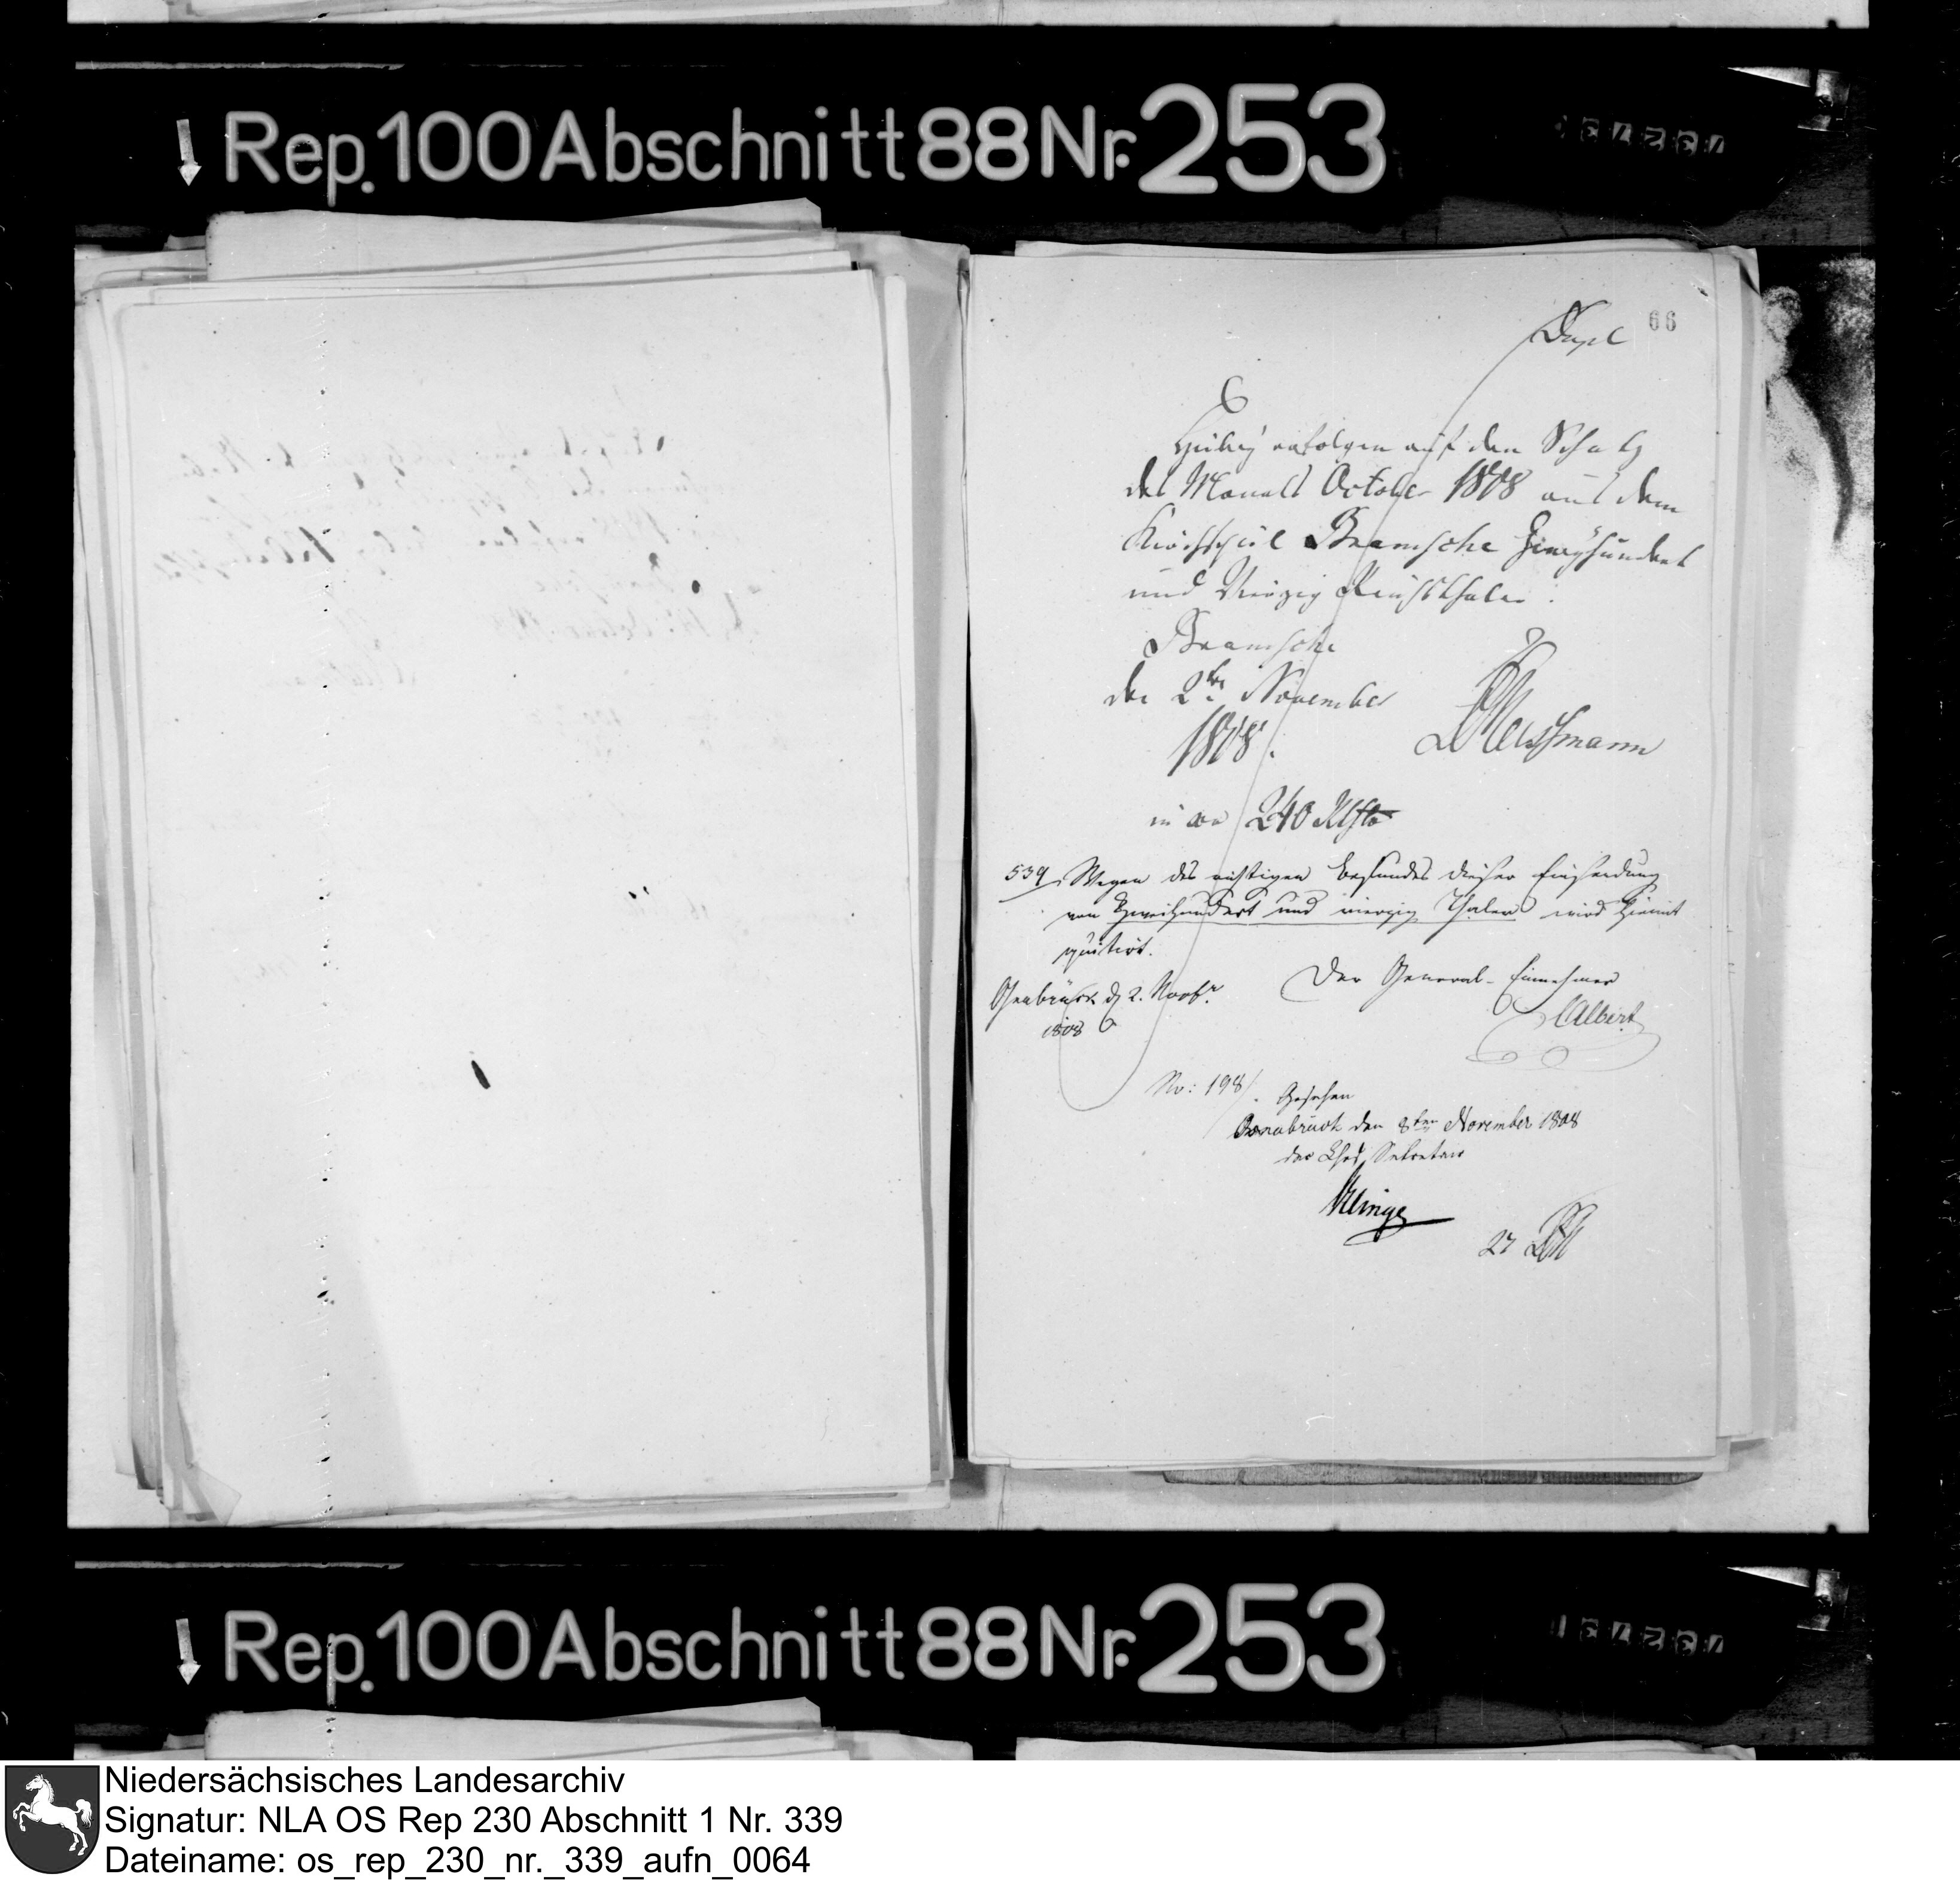 Rep. 100 Abschnitt 88 Nr. 253
66
Dupl
Hiebey erfolgen auf den Schatz
des Monats October 1808 aus dem
Kirchspiel Bramsche Zweyhundert
und Vierzig Reichsthaler.
Bramsche
den 2ten November
1808.
in 240 Rthlr
539. Wegen des richtigen Befundes dieser Einsendung
von Zweihundert und vierzig Thaler wird hiemit
quitirt.
Osnabrück d 2. Novbr.
1808
Der General-Einnehmer
CAlbert
No: 198/. Gesehen
Osnabrück den 8ten November 1808
der Secretair
Klinge
27
Rep. 100 Abschnitt 88 Nr. 253
Niedersächsisches Landesarchiv
Signatur: NLA OS Rep 230 Abschnitt 1 Nr. 339
Dateiname: os_rep_230_nr._339_aufn_0064